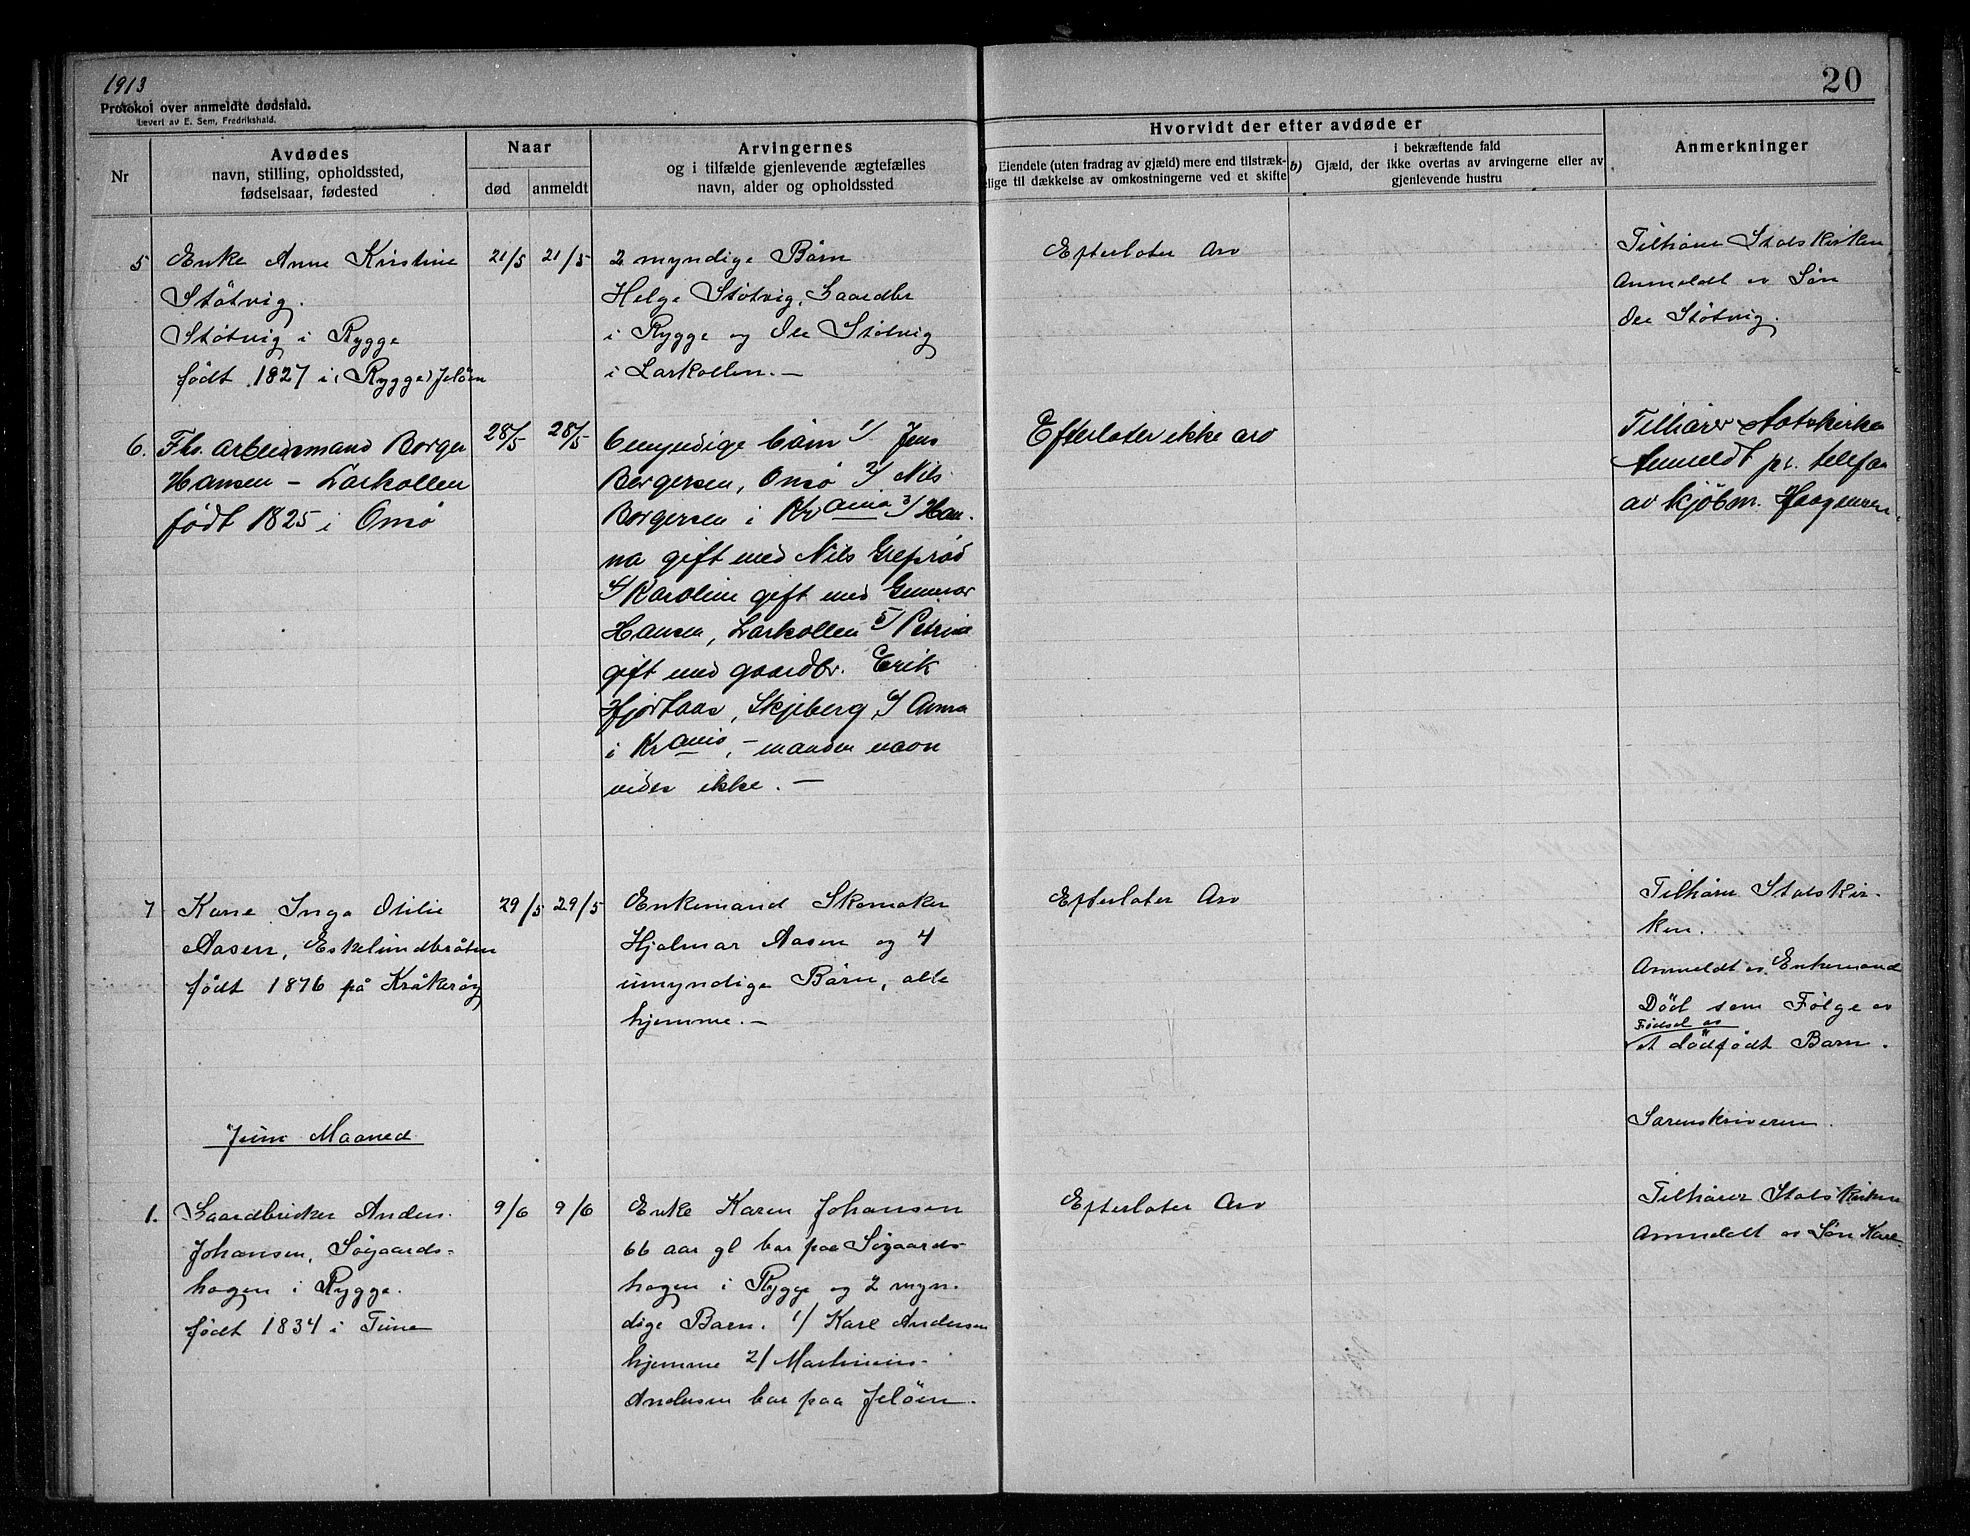 1913
20
Protokol over anmeldte dødsfald.
Levert av E. Sem, Fredrikshald.
Nr
Avdødes
navn, stilling, opholdssted,
fødselsaar, fødested
Naar
død
anmeldt
Arvingernes
og i tilfælde gjenlevende ægtefælles
navn, alder og opholdssted
Hvorvidt der efter avdøde er
Eiendele (uten fradrag av gjæld) mere end tilstræk-
elige til dækkelse av omkostningerne ved et skifte
i bekræftende fald
b) Gjæld, der ikke overtas av arvingerne eller av
gjenlevende hustru
Anmerkninger
5
Enke Anne Kristine
Støtvig.
Støtvig i Rygge
født 1827 i (Rygge) Jeløen
21/5
21/5
2 myndige Børn
Helge Støtvig, Gaardbr
i Rygge og Ole Støtvig
i Larkollen.—
Efterlater Arv
Tilhører Statskirken
Anmeldt av Søn
Ole Støtvig.
6.
Fhv. arbeidsmand Borger
Hansen – Larkollen
født 1825 i Onsø
28/5
28/5
6 myndige børn 1/ Jens
Borgersen, Onsø 2/ Nils
Borgersen i Kr.ania 3/ Han-
na gift med Nils Greprød
4/ Karoline gift med Gunnar
Hansen, Larkollen 5/ Petrine
gift med gaardbr. Erik
Hjortaas, Skjeberg, 6/ Anna
i Kr.ania, – manden navn
vides ikke. —
Efterlater ikke arv
Tilhører Statskirken
Anmeldt pr. telefon
av kjøbm. Haagensen.
7
Kone Inga Otilie
Aasen, Eskelundbråten
født 1876 på Kråkerøy
29/5
29/5
Enkemand Skomaker
Hjalmar Aasen og 4
umyndige Børn, alle
hjemme.—
Efterlater Arv
Tilhører Statskir-
ken.
Anmeldt av Enkemand
Død som Følge av
Fødsel av
et dødfødt Barn.
Juni Maaned
Sorenskriveren.
1.
Gaardbruker Anders
Johansen, Søgaards-
hagen i Rygge.
født 1834 i Tune
9/6
9/6
Enke Karen Johansen
66 aar gl bor paa Søgaards-
hagen i Rygge og 2 myn-
dige Barn. 1/ Karl Andersen
hjemme 2/ Martinius
Andersen bor paa Jeløen.
Efterlater Arv
Tilhører Statskirken
Anmeldt av Søn Karl.